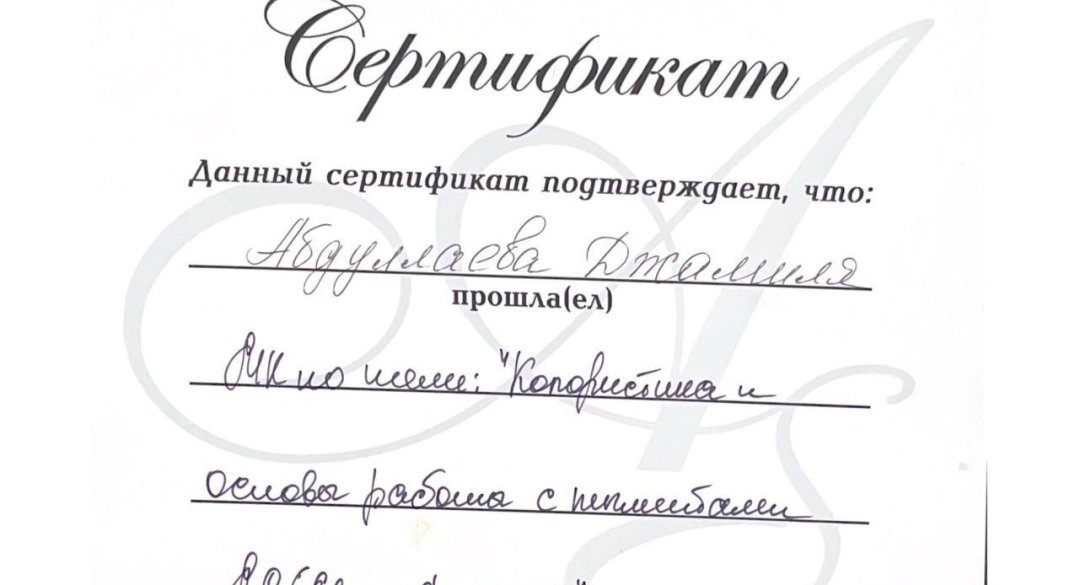 Сертификат
Данный сертификат подтверждает, что:
Абдуллаева Джамиля
прошла(ел)
МК по теме: "Колористика и
основы работы с пигментами